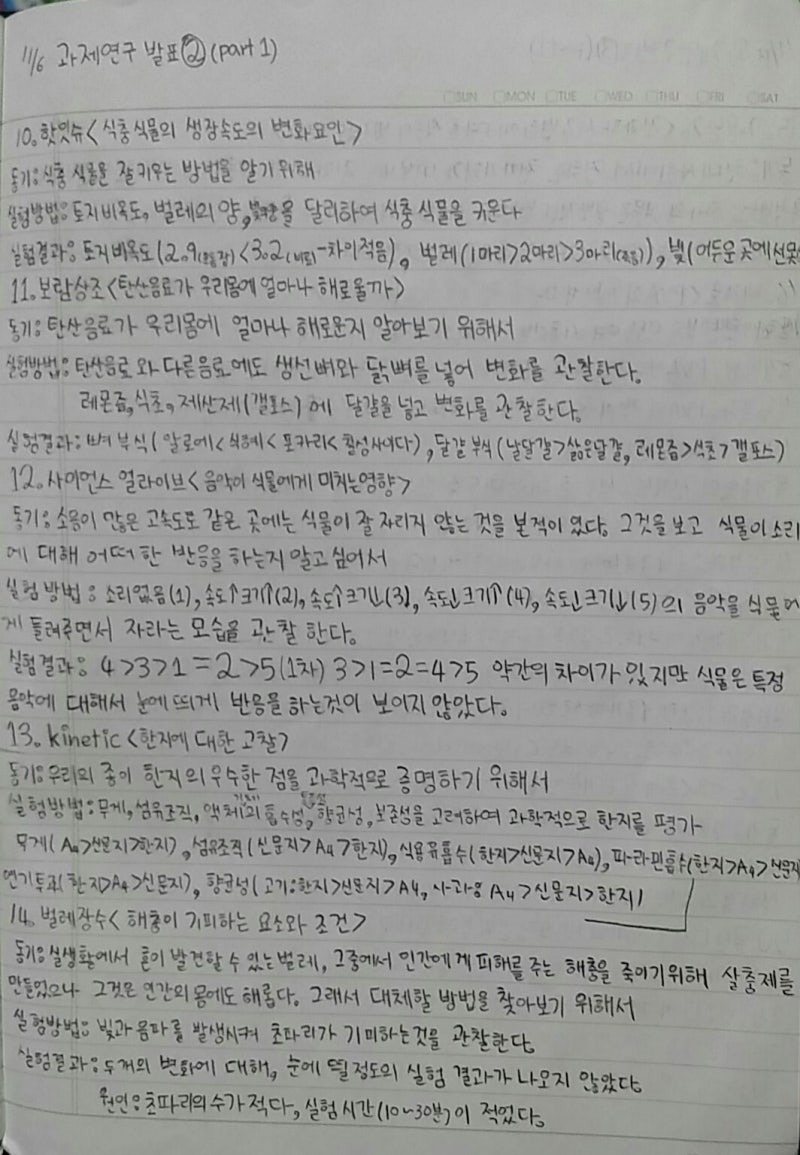 11/6 과제연구 발표②(part 1)
SUN MON TUE WED THU FRI SAT
10. 핫잇슈<식충식물의 생장속도의 변화요인>
동기: 식충 식물을 잘 키우는 방법을 알기 위해
실험방법: 토지비옥도, 벌레의 양, 을 달리하여 식충식물을 키운다
실험결과: 토지비옥도(2.9 <3.2 -차이적음), 벌레(1마리>2마리>3마리), 빛(어두운 곳에선
11. 보람상조<탄산음료가 우리몸에 얼마나 해로울까>
동기: 탄산음료가 우리몸에 얼마나 해로운지 알아보기 위해서
실험방법: 탄산음료와 다른음료에도 생선뼈와 닭뼈를 넣어 변화를 관찰한다.
레몬즙, 식초, 제산제(갤포스)에 달걀을 넣고 변화를 관찰한다.
실험결과: 뼈 부식(알로에<식혜<포카리<칠성사이다), 달걀 부식(날달걀>삶은달걀, 레몬즙>식초>갤포스)
12. 사이언스 얼라이브<음악이 식물에게 미치는영향>
동기: 소음이 많은 고속도로 같은 곳에는 식물이 잘 자리지 않는 것을 본적이 있다. 그것을 보고 식물이 소리
에 대해 어떠한 반응을 하는지 알고 싶어서
실험 방법: 소리없음(1), 속도↑크기↑(2), 속도↑크기↓(3), 속도↓크기↑(4), 속도↓크기↓(5)의 음악을 식물에
게 들려주면서 자라는 모습을 관찰 한다.
실험결과: 4>3>1=2>5(1차) 3>1=2=4>5 약간의 차이가 있지만 식물은 특정
음악에 대해서 눈에 띄게 반응을 하는것이 보이지 않았다.
13. kinetic<한지에 대한 고찰>
동기: 우리의 종이 한지의 우수한 점을 과학적으로 증명하기 위해서
실험방법: 무게, 섬유조직, 액체의 흡수성, 향균성, 보존성을 고려하여 과학적으로 한지를 평가
무게(A4>신문지>한지), 섬유조직(신문지>A4>한지), 식용유흡수(한지>신문지>A4), 파라핀흡수(한지>A4>신문지
연기투과(한지>A4>신문지), 향균성(고기:한지>신문지>A4, 사과:A4>신문지>한지)
14. 벌레장수<해충이 기피하는 요소와 조건>
동기: 실생활에서 흔이 발견할 수 있는벌레, 그중에서 인간에게 피해를 주는 해충을 죽이기위해 살충제를
만들었으나 그것은 인간의 몸에도 해롭다. 그래서 대체할 방법을 찾아보기 위해서
실험방법: 빛과 음파를 발생시켜 초파리가 기피하는것을 관찰한다.
실험결과: 두개의 변화에 대해, 눈에 띌정도의 실험 결과가 나오지 않았다
원인: 초파리의 수가 적다, 실험 시간(10~30분)이 적었다.